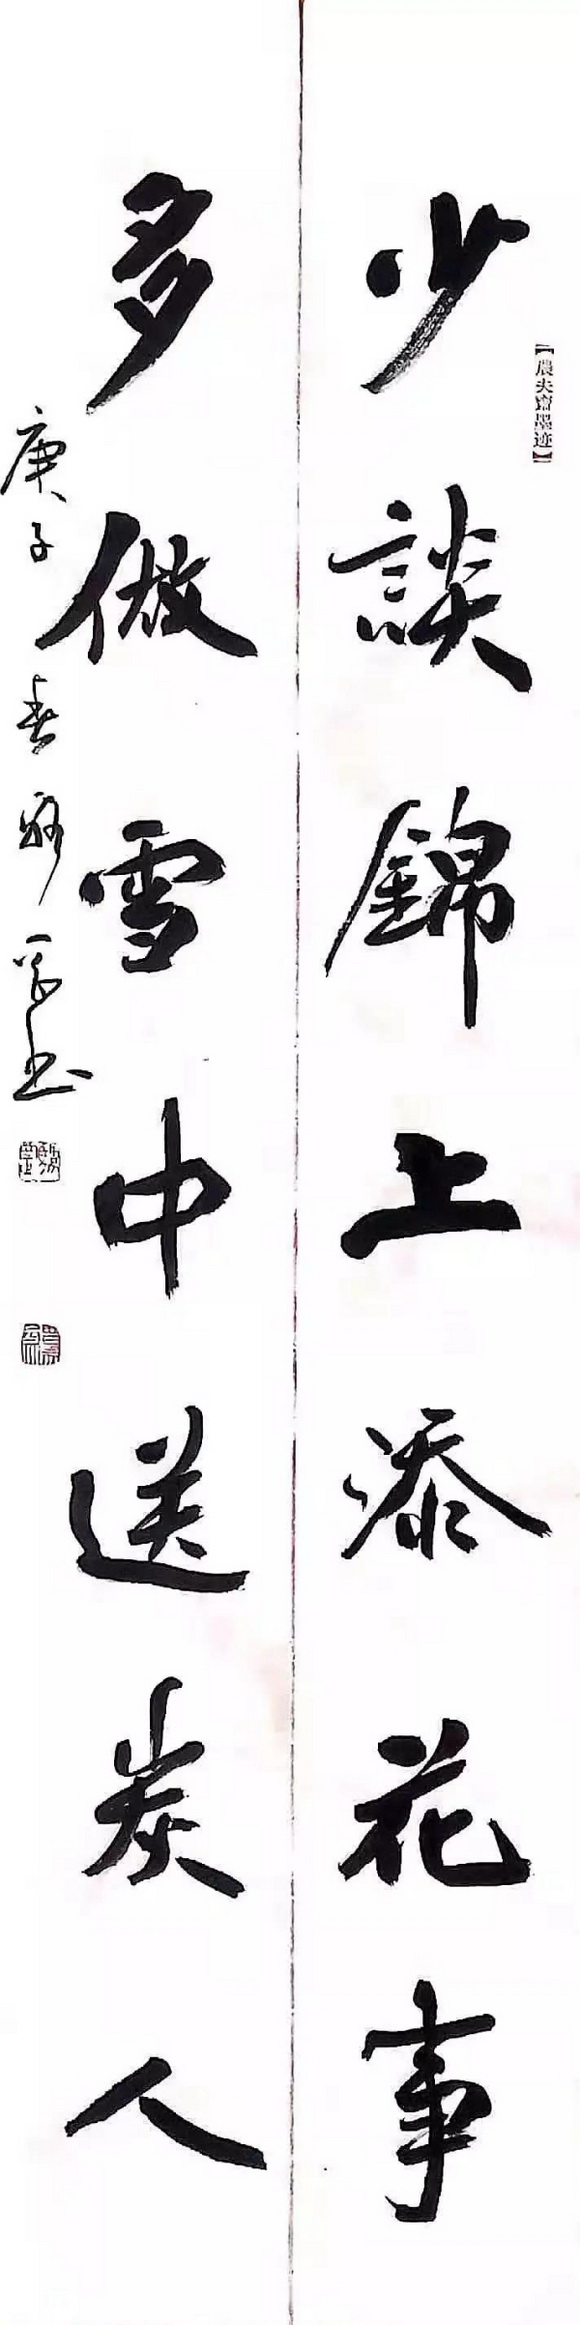 少談錦上添花事
【農夫齋墨迹】
多做雪中送炭人
庚子春